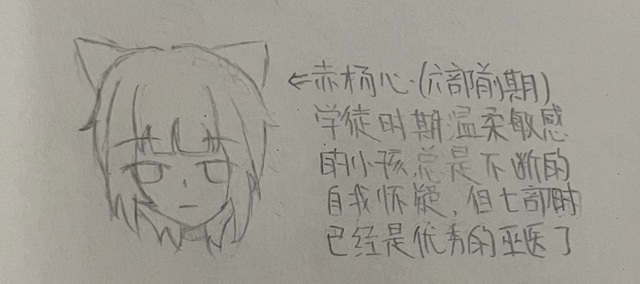 ←赤杨心·(六部前期)
学徒时期温柔敏感
的小孩总是不断的
自我怀疑,但七部时
已经是优秀的巫医了